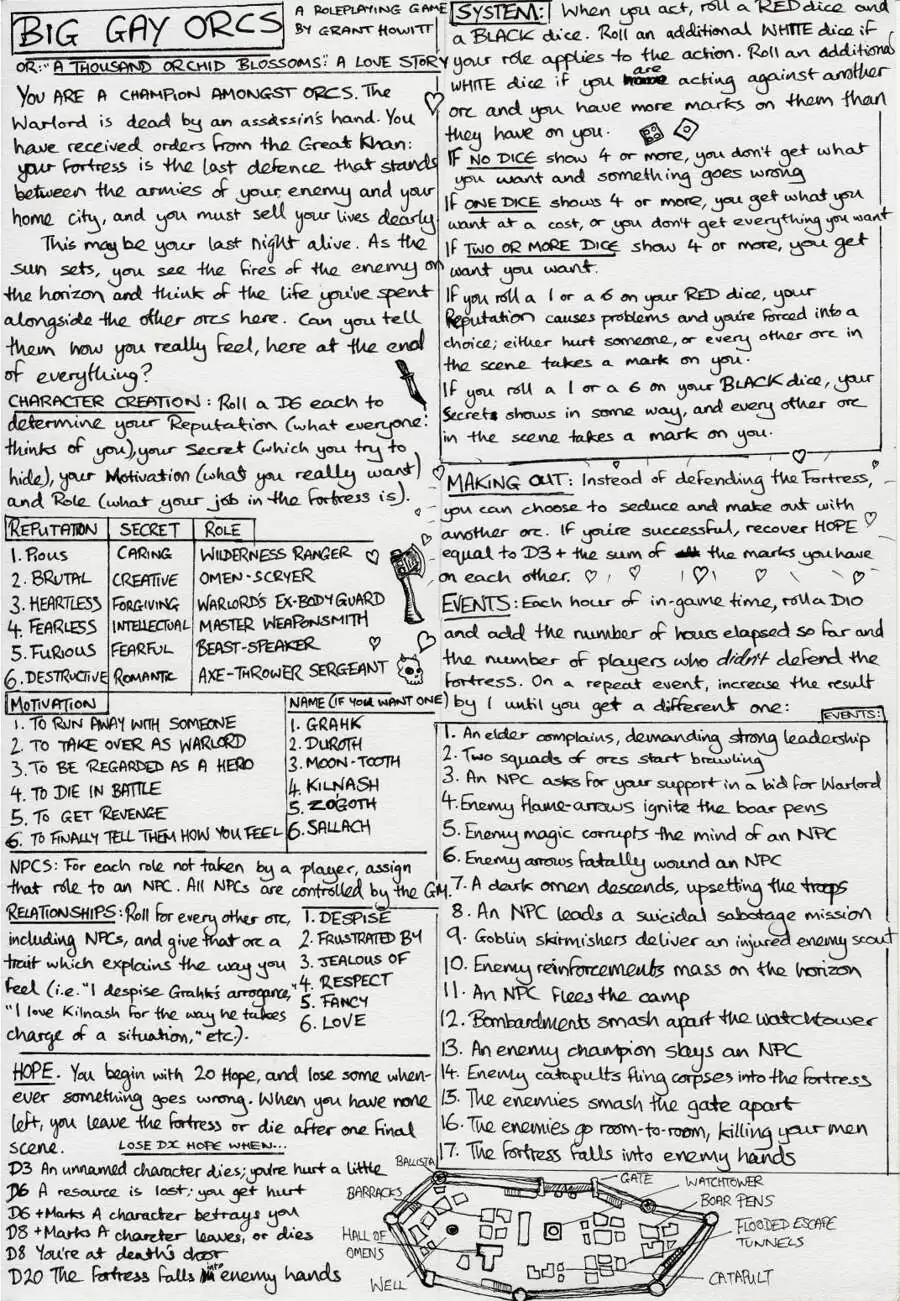 BIG GAY ORCS
A ROLEPLAYING GAME
BY GRANT HOWITT
OR: "A THOUSAND ORCHID BLOSSOMS": A LOVE STORY
YOU ARE A CHAMPION AMONGST ORCS. The
Warlord is dead by an assassin's hand. You
have received orders from the Great Khan:
your fortress is the last defence that stands
between the armies of your enemy and your
home city, and you must sell your lives dearly.
This may be your last night alive. As the
sun sets, you see the fires of the enemy on
the horizon and think of the life you've spent
alongside the other orcs here. Can you tell
them how you really feel, here at the end
of everything?
CHARACTER CREATION: Roll a D6 each to
determine your Reputation (what everyone
thinks of you), your Secret (which you try to
hide), your Motivation (what you really want)
and Role (what your job in the fortress is).
REPUTATION SECRET ROLE
1. PIOUS CARING WILDERNESS RANGER
2. BRUTAL CREATIVE OMEN-SCRYER
3. HEARTLESS FORGIVING WARLORD'S EX-BODYGUARD
4. FEARLESS INTELLECTUAL MASTER WEAPONSMITH
5. FURIOUS FEARFUL BEAST-SPEAKER
6. DESTRUCTIVE ROMANTIC AXE-THROWER SERGEANT
MOTIVATION NAME (IF YOU WANT ONE)
1. TO RUN AWAY WITH SOMEONE 1. GRAHK
2. TO TAKE OVER AS WARLORD 2. DUROTH
3. TO BE REGARDED AS A HERO 3. MOON-TOOTH
4. TO DIE IN BATTLE 4. KILNASH
5. TO GET REVENGE 5. ZOGOTH
6. TO FINALLY TELL THEM HOW YOU FEEL 6. SALLACH
NPCS: For each role not taken by a player, assign
that role to an NPC. All NPCs are controlled by the GM.
RELATIONSHIPS: Roll for every other orc,
including NPCs, and give that orc a
trait which explains the way you
feel (i.e. "I despise Grahk's arrogance,"
"I love Kilnash for the way he takes
charge of a situation," etc.).
1. DESPISE
2. FRUSTRATED BY
3. JEALOUS OF
4. RESPECT
5. FANCY
6. LOVE
HOPE. You begin with 20 Hope, and lose some when-
ever something goes wrong. When you have none
left, you leave the fortress or die after one final
scene. LOSE DX HOPE WHEN...
D3 An unnamed character dies; you're hurt a little
D6 A resource is lost; you get hurt
D6 +Marks A character betrays you
D8 +Marks A charcter leaves, or dies
D8 You're at death's door
D20 The fortress falls into enemy hands
SYSTEM: When you act, roll a RED dice and
a BLACK dice. Roll an additional WHITE dice if
your role applies to the action. Roll an additional
WHITE dice if you are acting against another
orc and you have more marks on them than
they have on you.
IF NO DICE show 4 or more, you don't get what
you want and something goes wrong
If ONE DICE shows 4 or more, you get what you
want at a cost, or you don't get everything you want
If TWO OR MORE DICE show 4 or more, you get
want you want.
If you roll a 1 or a 6 on your RED dice, your
Reputation causes problems and you're forced into a
choice; either hurt someone, or every other orc in
the scene takes a mark on you.
If you roll a 1 or a 6 on your BLACK dice, your
Secret shows in some way, and every other orc
in the scene takes a mark on you.
MAKING OUT: Instead of defending the Fortress,
you can choose to seduce and make out with
another orc. If you're successful, recover HOPE
equal to D3 + the sum of the marks you have
on each other.
EVENTS: Each hour of in-game time, roll a D10
and add the number of hours elapsed so far and
the number of players who didn't defend the
fortress. On a repeat event, increase the result
by 1 until you get a different one:
EVENTS:
1. An elder complains, demanding strong leadership
2. Two squads of orcs start brawling
3. An NPC asks for your support in a bid for Warlord
4. Enemy flame-arrows ignite the boar pens
5. Enemy magic corrupts the mind of an NPC
6. Enemy arrows fatally wound an NPC
7. A dark omen descends, upsetting the troops
8. An NPC leads a suicidal sabotage mission
9. Goblin skirmishers deliver an injured enemy scout
10. Enemy reinforcements mass on the horizon
11. An NPC flees the camp
12. Bombardments smash apart the watchtower
13. An enemy champion slays an NPC
14. Enemy catapults fling corpses into the fortress
15. The enemies smash the gate apart
16. The enemies go room-to-room, killing your men
17. The fortress falls into enemy hands
BALLISTA
GATE
WATCHTOWER
BARRACKS
BOAR PENS
HALL OF
OMENS
FLOODED ESCAPE
TUNNELS
WELL
CATAPULT